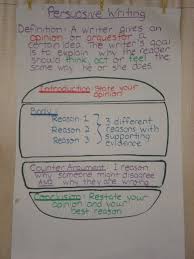 Persuasive Writing
Definition: A writer gives an
opinion or argues for a
certain idea. The writer's goal
is to explain why the reader
should think, act or feel the
same way he or she does.
Introduction: State your
opinion
Body:
Reason 1
Reason 2
Reason 3
3 different
reasons with
supporting
evidence
Counter Argument: 1 reason
why someone might disagree
and why they are wrong
Conclusion: Restate your
opinion and your
best reason